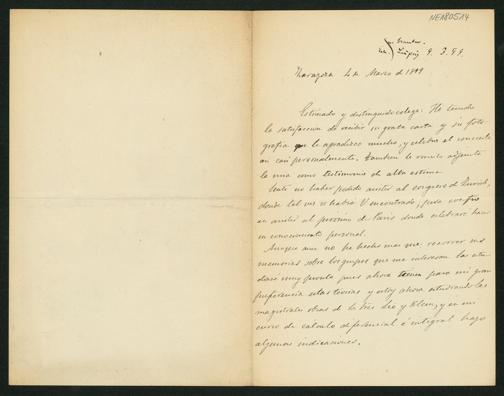 NEA80514
Leipzig 9. 3. 99.
Zaragoza 4 de Marzo de 1899
Estimado y distinguido colega: He tenido
la satisfaccion de recibir su grata carta y su foto-
grafia que le agradezco mucho, y celebro el conocerle
asi casi personalmente. Tambien le remito adjunta
la mia como testimonio de alta estima.
Siento no haber podido asistir al congreso de Zurich,
donde tal vez le habria V encontrado; pero confio
en asistir al proximo de Paris donde celebraré hacer
su conocimiento personal.
Aunque aun no he hecho mas que recorrer sus
memorias sobre los grupos que me interesan las estu-
diaré muy pronto pues ahora tienen para mi gran
preferencia estas teorias y estoy ahora estudiando las
magistrales obras de los Sres Lie y Klein, y en mi
curso de calculo diferencial é integral hago
algunas indicaciones.